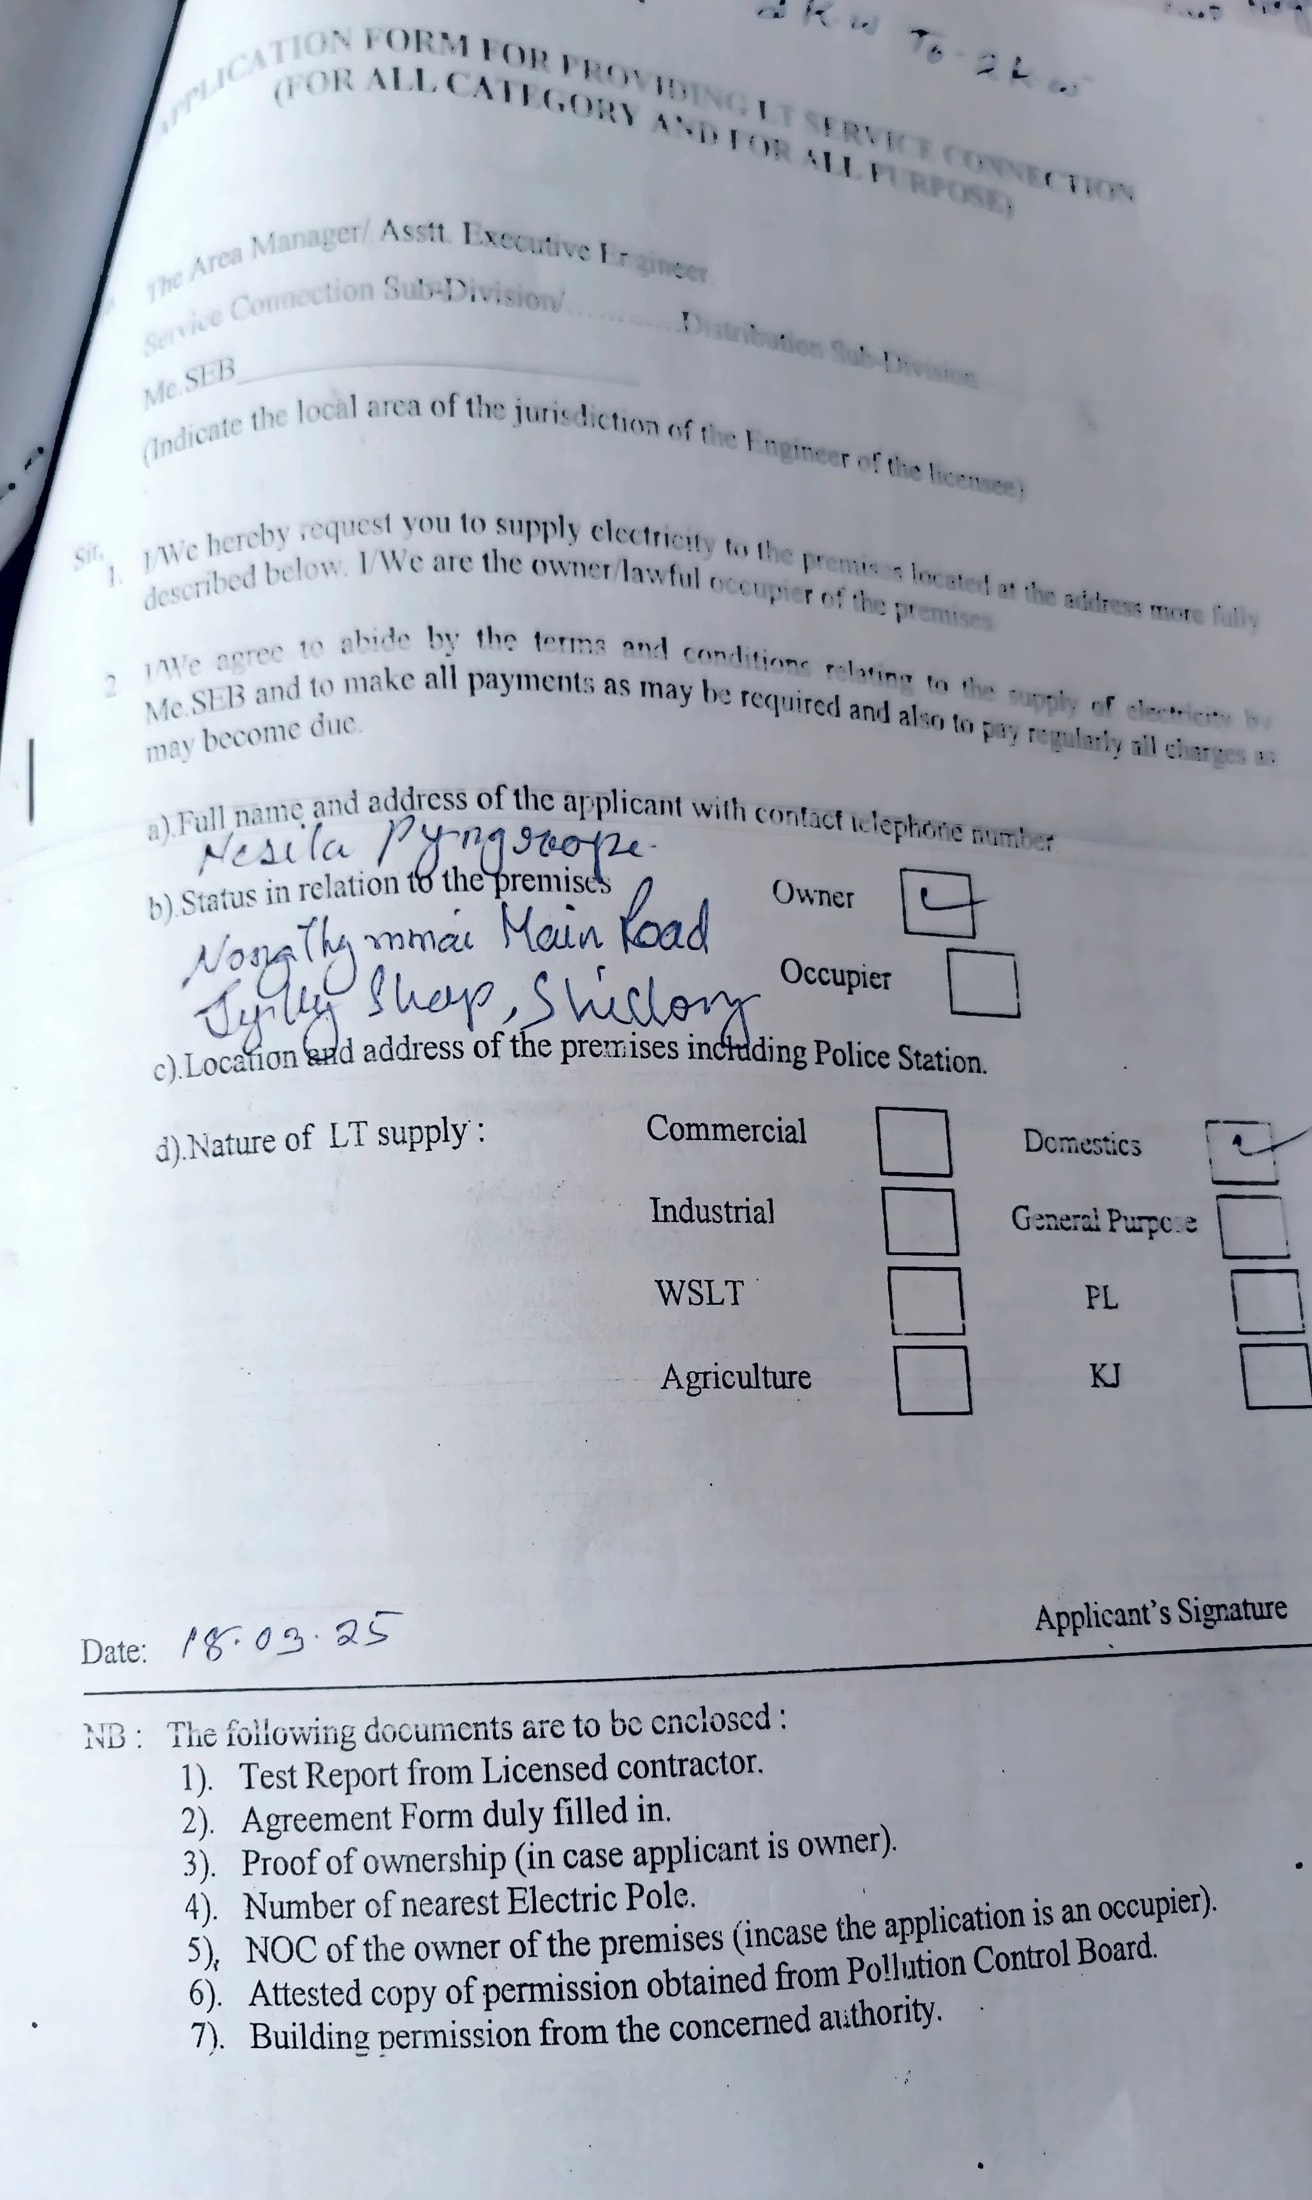 To - 2kw
APPLICATION FORM FOR PROVIDING LT SERVICE CONNECTION
(FOR ALL CATEGORY AND FOR ALL PURPOSE)
The Area Manager/ Asstt. Executive Engineer
Service Connection Sub-Division/............Distribution Sub-Division
Me.SEB
(Indicate the local area of the jurisdiction of the Engineer of the licensee)
Sir,
1. I/We hereby request you to supply electricity to the premises located at the address more fully
described below. I/We are the owner/lawful occupier of the premises
2 I/We agree to abide by the terms and conditions relating to the supply of electricity by
Me.SEB and to make all payments as may be required and also to pay regularly all charges as
may become due.
a).Full name and address of the applicant with contact telephone number
Nesila Pyngrope.
b).Status in relation to the premises Owner
Nongthymmai Main Road
Occupier
Shop, Shillong
c).Location and address of the premises including Police Station.
d).Nature of LT supply : Commercial Domestics
Industrial General Purpose
WSLT PL
Agriculture KJ
Applicant's Signature
Date: 18.03.25
NB : The following documents are to be enclosed :
1). Test Report from Licensed contractor.
2). Agreement Form duly filled in.
3). Proof of ownership (in case applicant is owner).
4). Number of nearest Electric Pole.
5), NOC of the owner of the premises (incase the application is an occupier).
6). Attested copy of permission obtained from Pollution Control Board.
7). Building permission from the concerned authority.